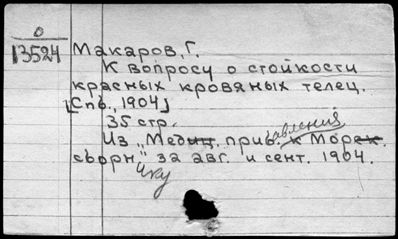 0
13524
Макаров, Г.
К вопросу о стойкости
красных кровяных телец.
[Спб., 1904]
35 стр.
Из „Медиц. приб. к Морск.
авления
сборн." за авг. и сент. 1904.
ику